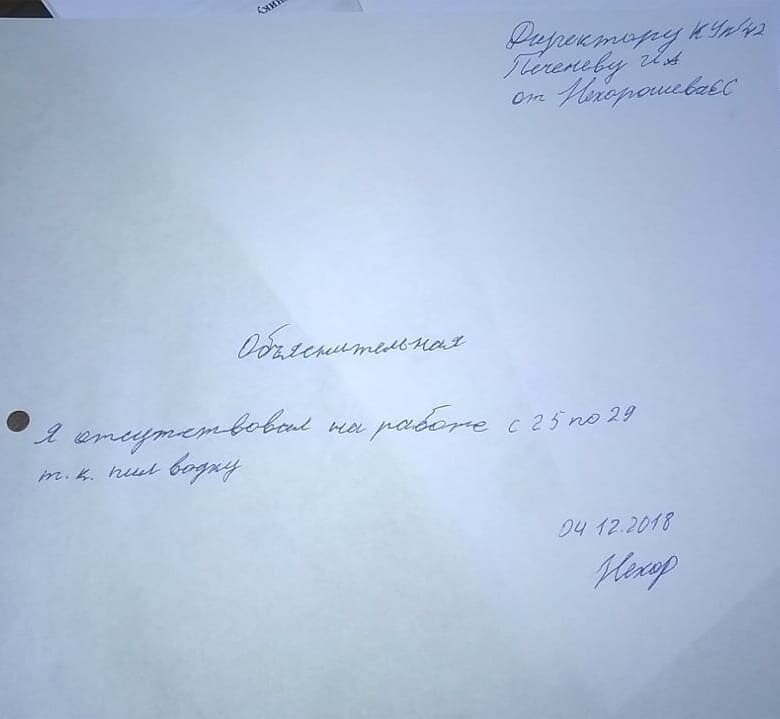 Директору
Печеневу И А
от Нехорошева ЕС
Объяснительная
Я отсутствовал на работе с 25 по 29
т.к. пил водку
04 12.2018
Нехор